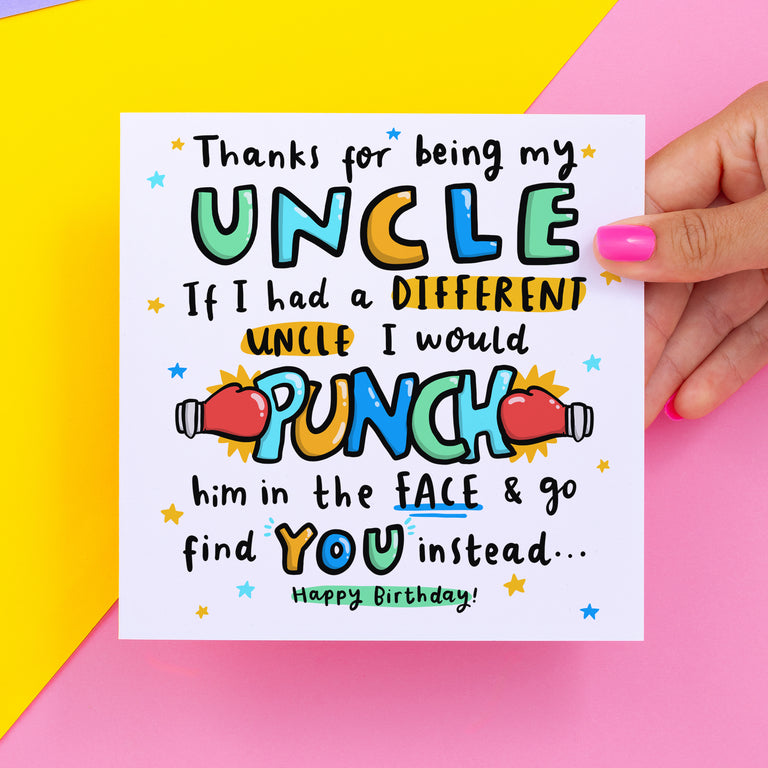 Thanks for being my
UNCLE
If I had a DIFFERENT
UNCLE I would
PUNCH
him in the FACE & go
find YOU instead...
Happy Birthday!